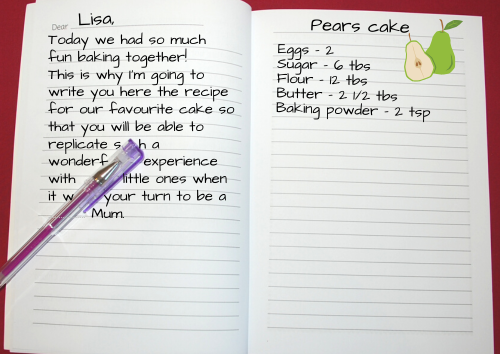 Dear Lisa,
Today we had so much
fun baking together!
This is why I'm going to
write you here the recipe
for our favourite cake so
that you will be able to
replicate a
experience
with little ones when
it your turn to be a
Mum.
Pears cake
Eggs - 2
Sugar - 6 tbs
Flour - 12 tbs
Butter - 2 1/2 tbs
Baking powder - 2 tsp